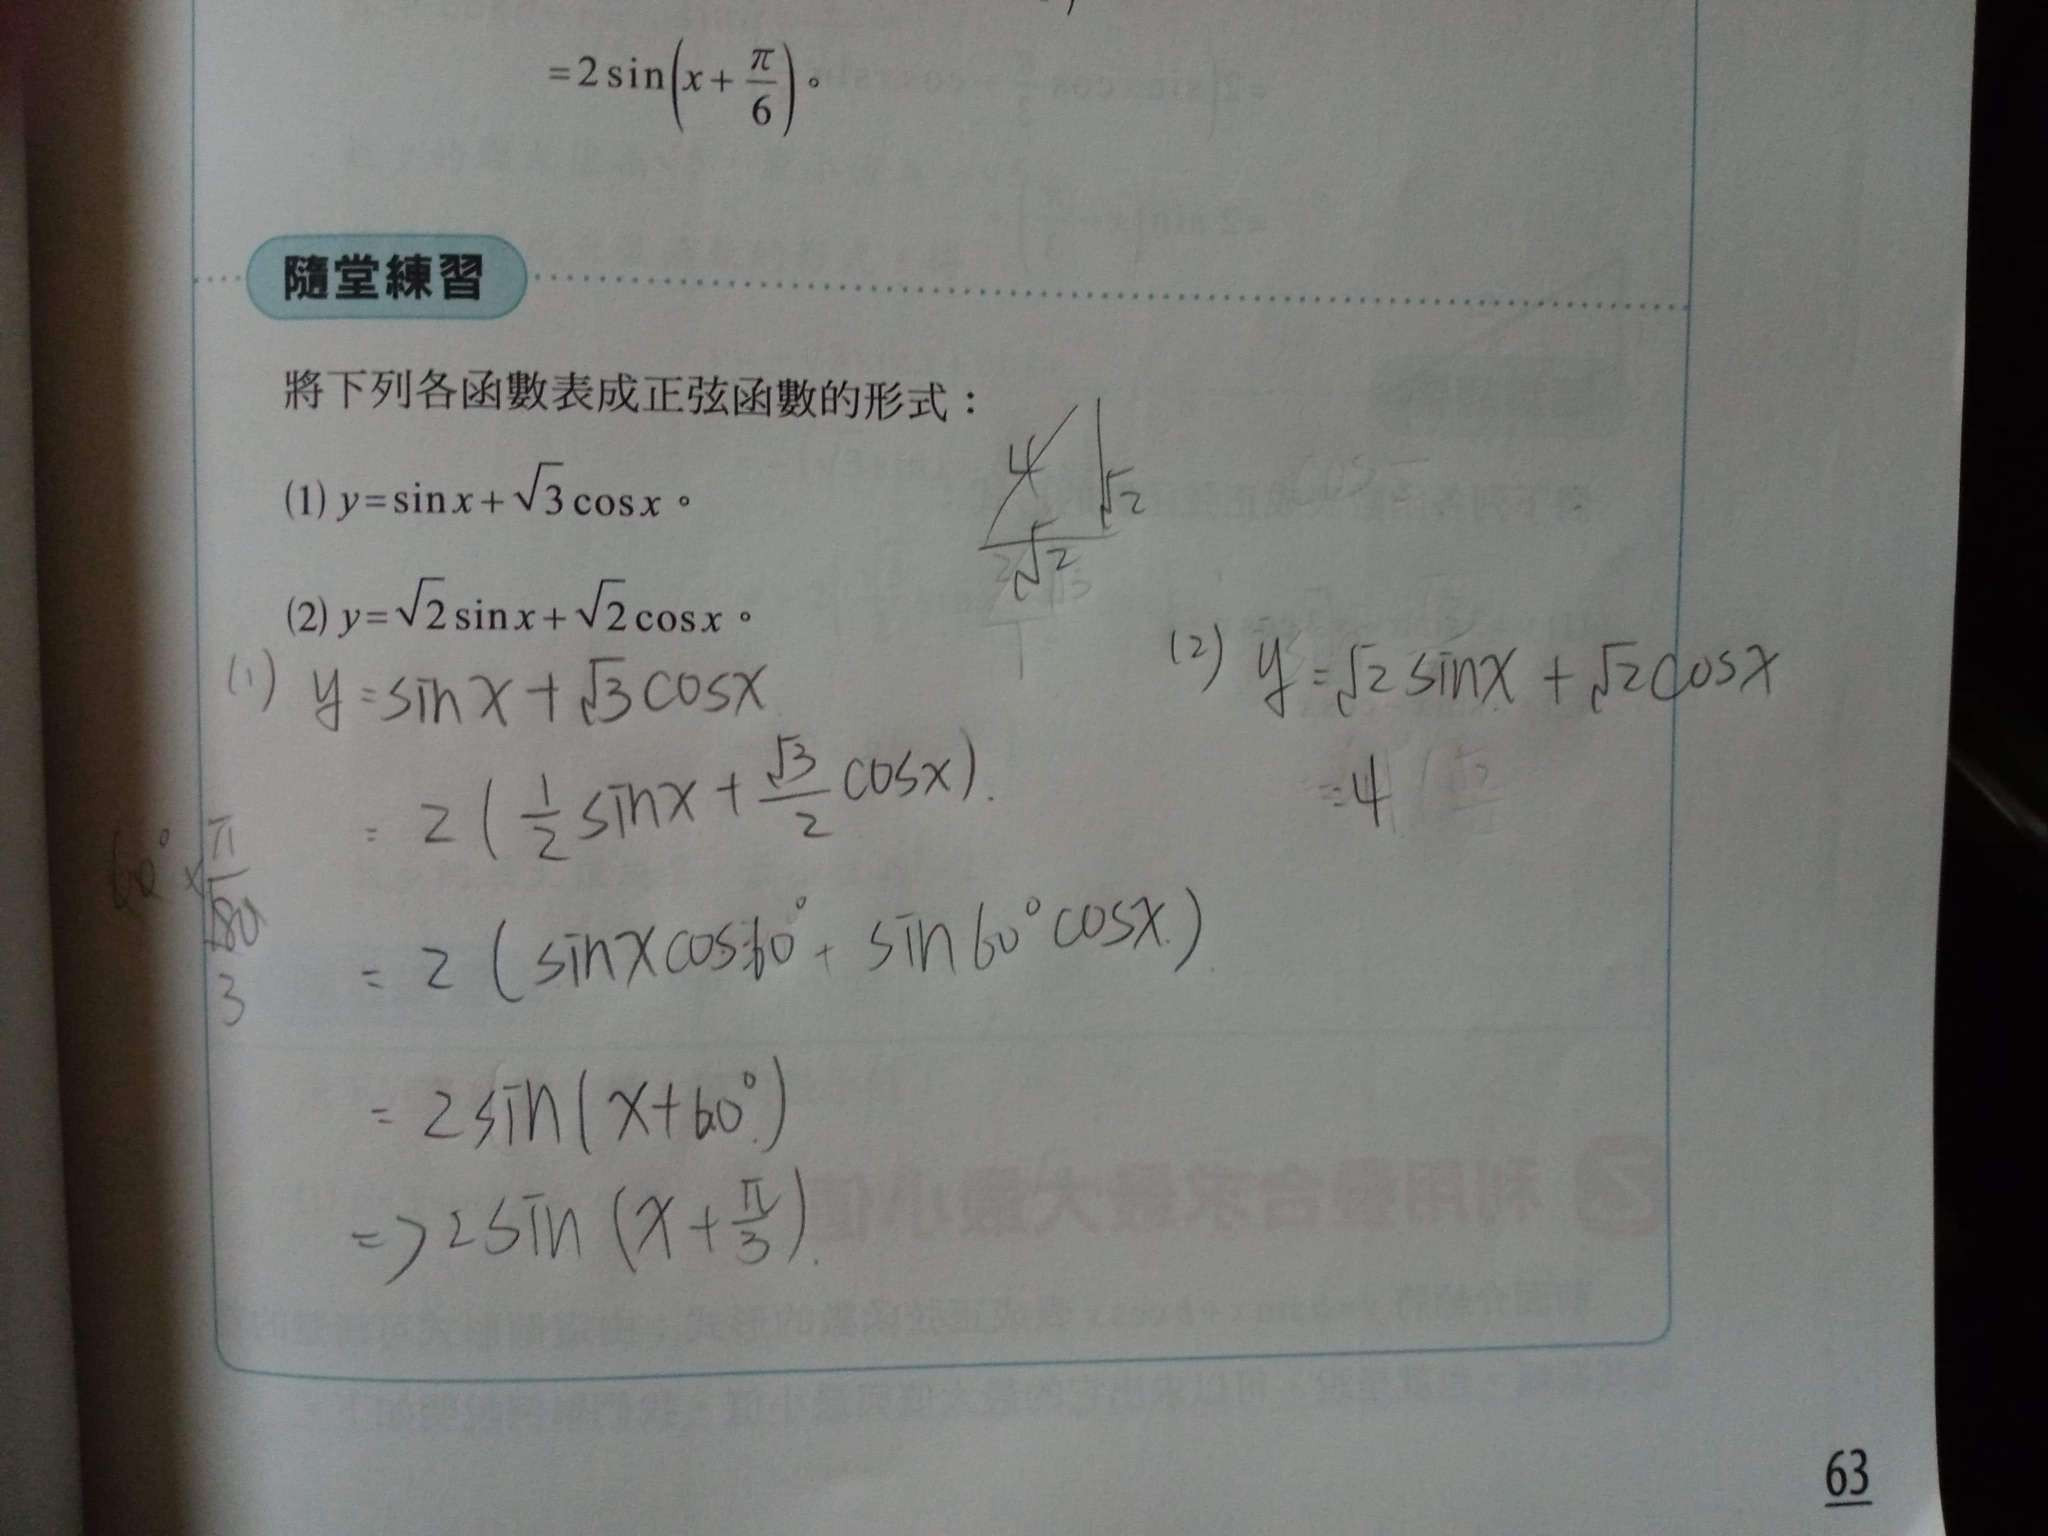 =2sin(x+π/6)。
隨堂練習
將下列各函數表成正弦函數的形式：
(1) y=sinx+√3cosx。
(2) y=√2sinx+√2cosx。
4
√2
√2
(1) y=sinx+√3cosx
=2(1/2sinx+√3/2cosx).
=2(sinxcos60°+sin60°cosx)
=2sin(x+60°)
=>2sin(x+π/3).
60°×π/180
3
(2) y=√2sinx+√2cosx
=4
63